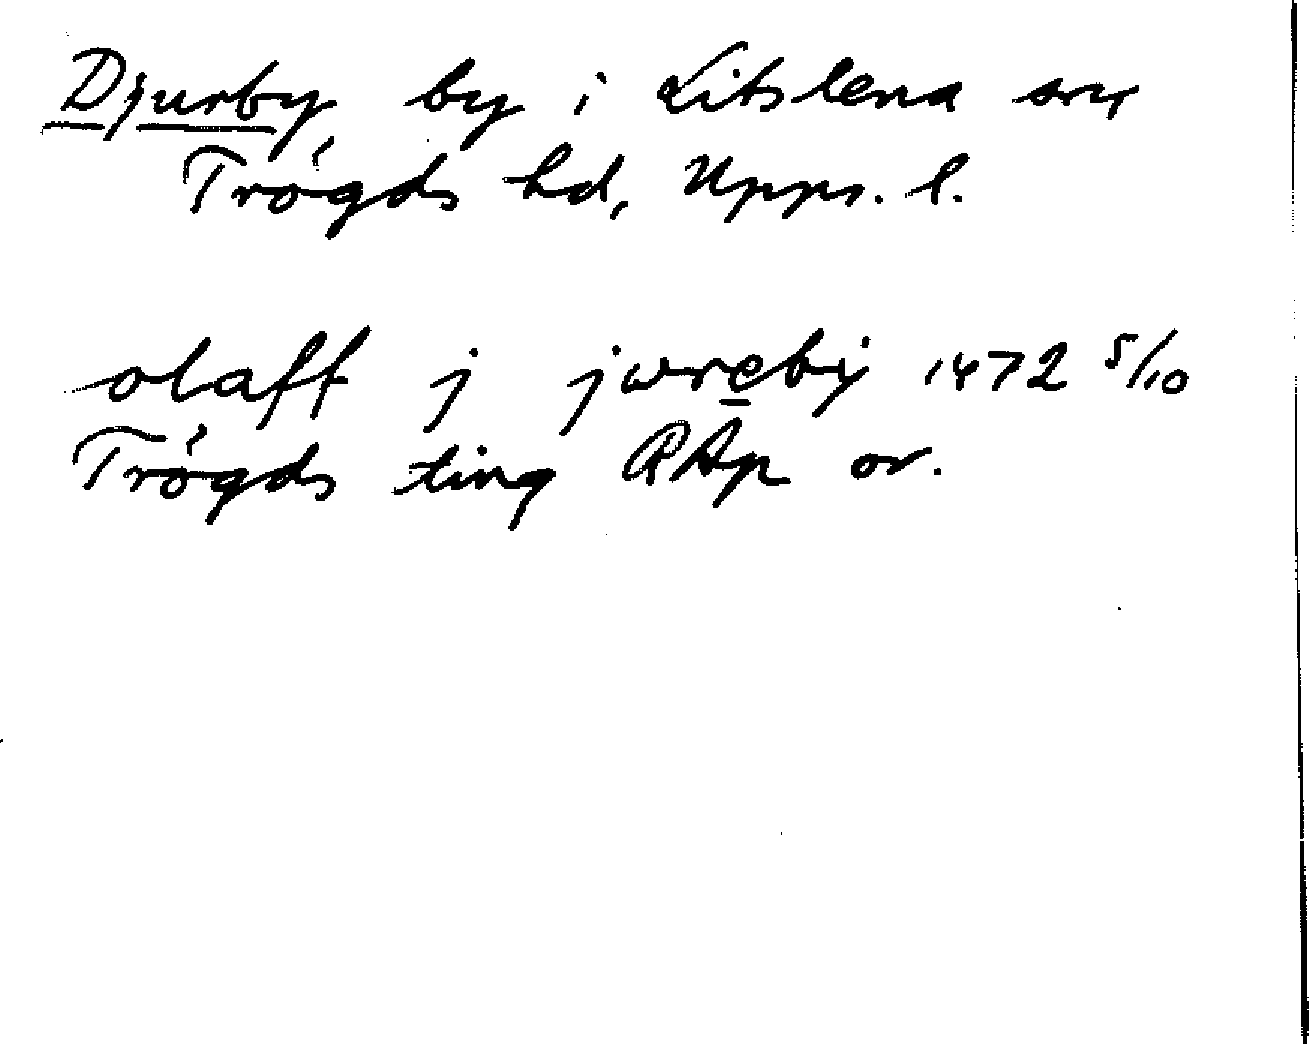 Djurby by i Litslena sn
Trögds hd, Upps. l.
olaff j jwreby 1472 5/10
Trögds ting RAp or.